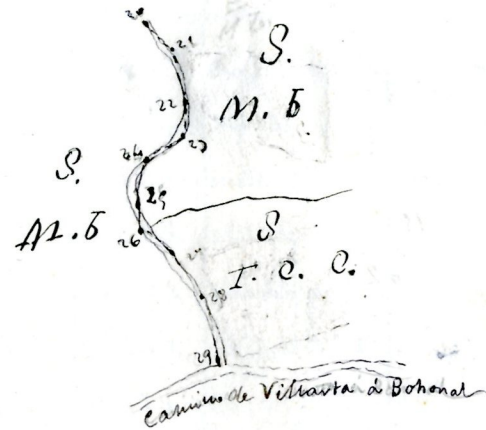 20
21
S.
22
M. b
23
24
S.
25
M. b
26
S
27
T. C. C.
28
29
Camino de Villarta á Bohonal